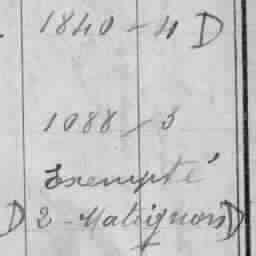 1840 - 4 D
1088 - 3
Exempté
D 2 - Matignon D